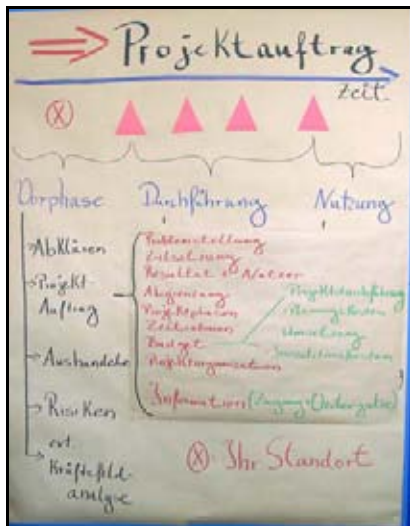 Projektauftrag
Zeit
X
Vorphase Durchführung Nutzung
Abklären
Projekt
Auftrag
Aushandeln
Risiken
evt.
Kräftefeld
analyse
Problemstellung
Zielsetzung
Resultat + Nutzer
Abgrenzung
Projektphasen
Zeitrahmen
Budget
Projektorganisation
Information (Zugang +
Projektdurchführung
Umsetzung
Investitionskosten
X Ihr Standort